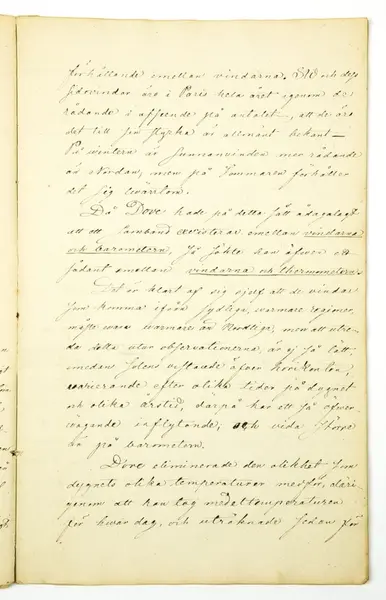 förhållande emellan vindarna. SW och dess
sidovindar äro i Paris hela året igenom de
rådande i afseende på antalet, att de äro
det till sin styrka är allmänt bekant –
På wintern är sunnanvinden mer rådande
än Nordan, men på Sommaren förhåller
det sig twärtom.
Då Dove hade på detta sätt ådagalagt
att ett samband existerar emellan vindarna
och barometern, så sökte han äfven ett
sådant emellan vindarna och thermometern.
Det är klart af sig sjelf att de vindar
som komma ifrån sydliga, varmare regioner,
måste vara varmare än Nordliga, men att
detta utur observationerna, är ej så lätt,
medan Solens vistande öfver horizonten,
varierande efter olika tider på dygnet
och olika årstid, derpå har ett så öfver-
vägande inflytande, och vida större
än på barometern.
Dove eliminerade den olikhet som
dygnets olika temperaturer medför, däri-
genom att han tog medeltemperaturen
för hvar dag, och uträknade sedan för